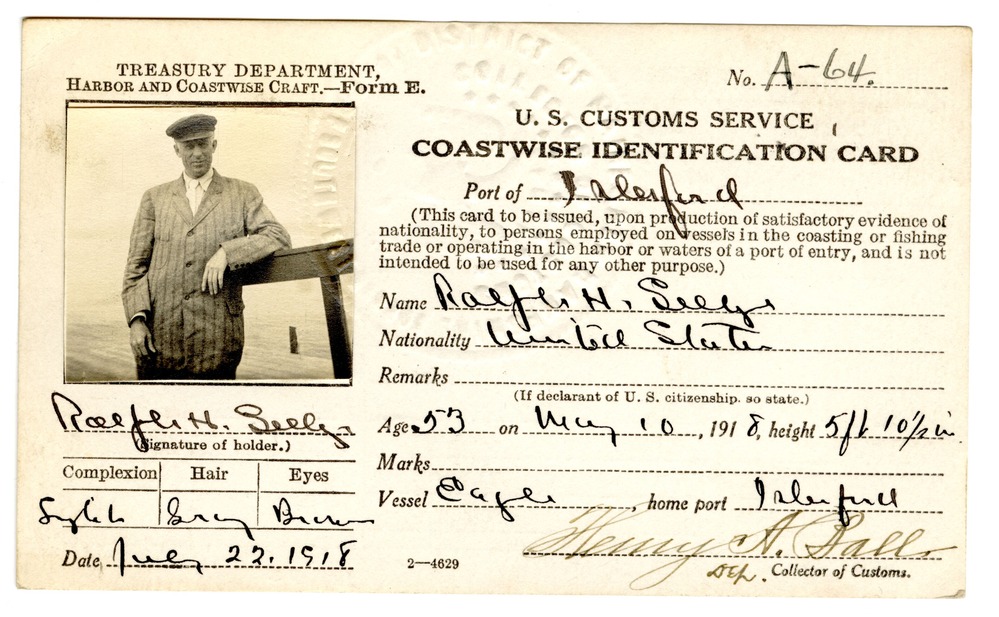 TREASURY DEPARTMENT,
HARBOR AND COASTWISE CRAFT.—Form E.
No. A-64.
U. S. CUSTOMS SERVICE
COASTWISE IDENTIFICATION CARD
Port of Islesford
(This card to be issued, upon production of satisfactory evidence of
nationality, to persons employed on vessels in the coasting or fishing
trade or operating in the harbor or waters of a port of entry, and is not
intended to be used for any other purpose.)
Name Ralph H. Seelye
Nationality United States
Remarks
(If declarant of U. S. citizenship, so state.)
Age 53 on May 10, 1918, height 5ft 10½ in.
Marks
Vessel Eagle, home port Islesford
Henry A. Ball
Dep. Collector of Customs.
Ralph H. Seelye
(Signature of holder.)
Complexion Hair Eyes
Light Gray Brown
Date July 22, 1918
2—4629